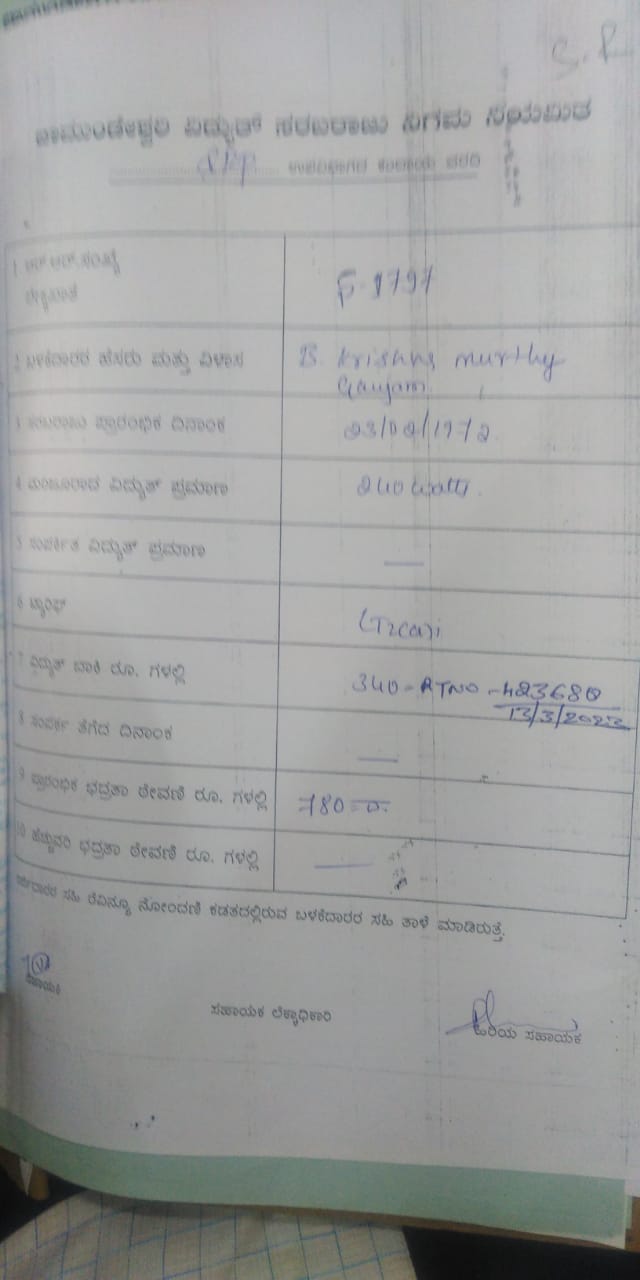 S.R
ಚಾಮುಂಡೇಶ್ವರಿ ವಿದ್ಯುತ್ ಸರಬರಾಜು ನಿಗಮ ನಿಯಮಿತ
ಉಪವಿಭಾಗದ ಕಂದಾಯ ವರದಿ
1 ಆರ್.ಆರ್.ಸಂಖ್ಯೆ
F-1797
2 ಬಳಕೆದಾರರ ಹೆಸರು ಮತ್ತು ವಿಳಾಸ
B. Krishna murthy
Ganjam.
3 ಸರಬರಾಜು ಪ್ರಾರಂಭಿಕ ದಿನಾಂಕ
23/02/1972
4 ಮಂಜೂರಾದ ವಿದ್ಯುತ್ ಪ್ರಮಾಣ
240 watts.
5 ಸಂಪರ್ಕಿತ ವಿದ್ಯುತ್ ಪ್ರಮಾಣ
—
6 ಟ್ಯಾರಿಫ್
7 ವಿದ್ಯುತ್ ಬಾಕಿ ರೂ. ಗಳಲ್ಲಿ
340 - RTNO - 423680
13/3/2023
8 ಸಂಪರ್ಕ ತೆಗೆದ ದಿನಾಂಕ
—
9 ಪ್ರಾರಂಭಿಕ ಭದ್ರತಾ ಠೇವಣಿ ರೂ. ಗಳಲ್ಲಿ
780=00.
10 ಹೆಚ್ಚುವರಿ ಭದ್ರತಾ ಠೇವಣಿ ರೂ. ಗಳಲ್ಲಿ
—
ಅರ್ಜಿದಾರರ ಸಹಿ ರೆವಿನ್ಯೂ ನೋಂದಣಿ ಕಡತದಲ್ಲಿರುವ ಬಳಕೆದಾರರ ಸಹಿ ತಾಳೆ ಮಾಡಿರುತ್ತೆ.
ಸಹಾಯಕ
ಸಹಾಯಕ ಲೆಕ್ಕಾಧಿಕಾರಿ
ಹಿರಿಯ ಸಹಾಯಕ